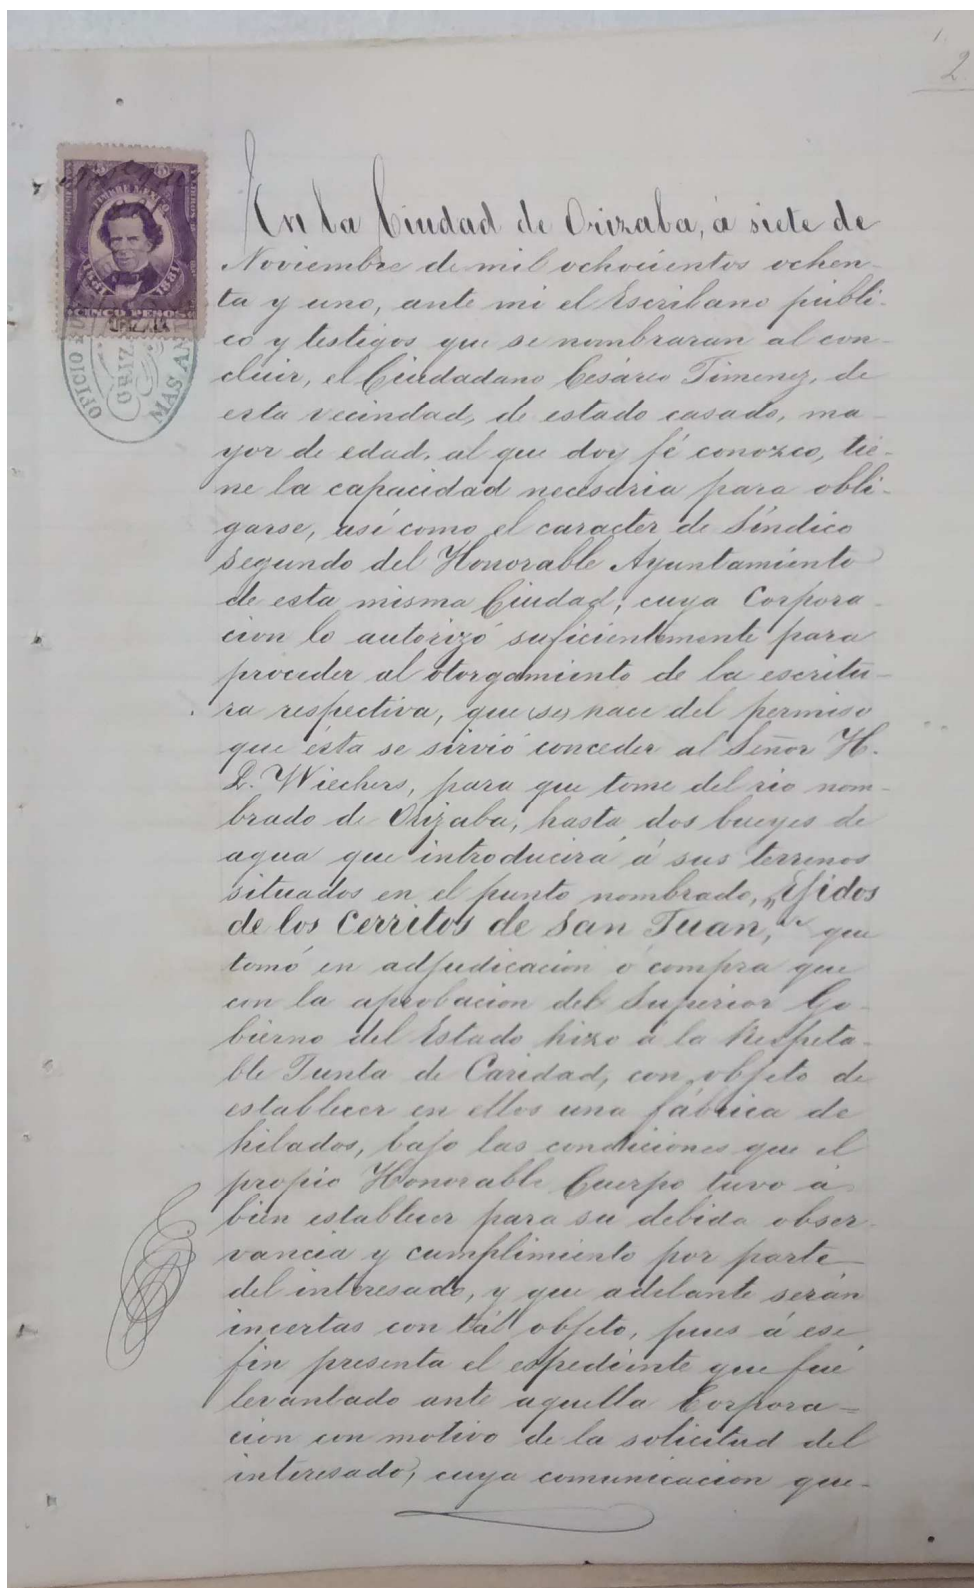 2
En la Ciudad de Orizaba, á siete de
Noviembre de mil ochocientos ochen-
ta y uno, ante mi el Escribano públi-
co y testigos que se nombraran al con-
cluir, el Ciudadano Cesáreo Jimenez, de
esta vecindad, de estado casado, ma-
yor de edad, al que doy fé conozco, tie-
ne la capacidad necesaria para obli-
garse, así como el caracter de Síndico
segundo del Honorable Ayuntamiento
de esta misma Ciudad, cuya Corpora-
cion lo autorizó suficientemente para
proceder al otorgamiento de la escritu-
ra respectiva, que (se) hace del permiso
que ésta se sirvió conceder al Señor H.
L. Wiechers, para que tome del rio nom-
brado de Orizaba, hasta dos bueyes de
agua que introducirá á sus terrenos
situados en el punto nombrado, "Ejidos
de los Cerritos de San Juan," que
tomó en adjudicacion ó compra que
con la aprobacion del Superior Go-
bierno del Estado hizo á la Respeta-
ble Junta de Caridad, con objeto de
establecer en ellos una fábrica de
hilados, bajo las condiciones que el
propio Honorable Cuerpo tuvo á
bien establecer para su debida obser-
vancia y cumplimiento por parte
del interesado, y que adelante serán
incertas con tál objeto, pues á ese
fin presenta el espediente que fué
levantado ante aquella Corpora-
cion con motivo de la solicitud del
interesado, cuya comunicacion que-
TIMBRE MEXICO
1881 1881
CINCO PESOS
ORIZABA
OFICIO